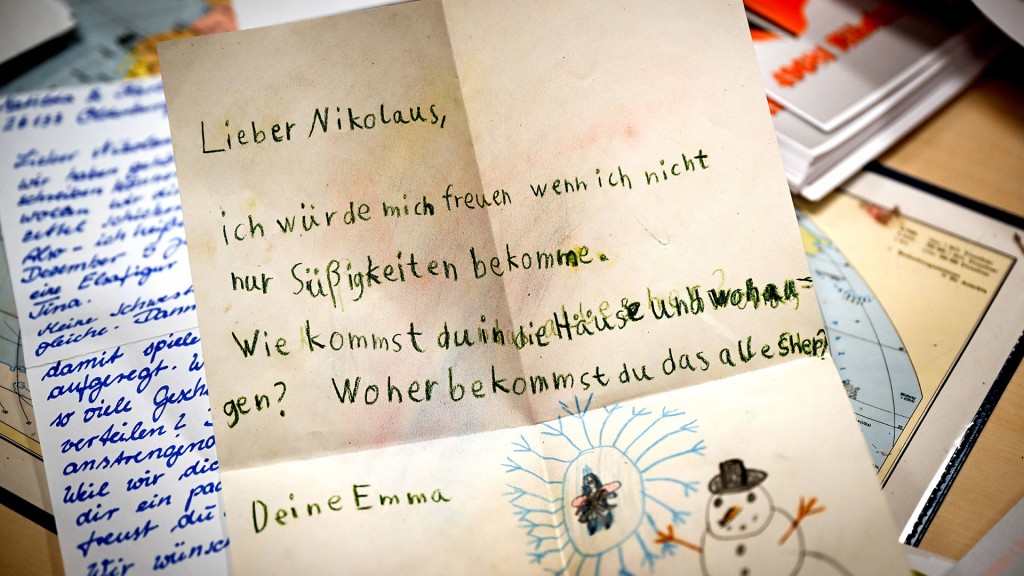 Lieber Nikolaus,
ich würde mich freuen wenn ich nicht
nur Süßigkeiten bekomme.
Wie kommst du in die Häuse und wohnu-
gen? Woher bekommst du das alle
Deine Emma
Lieber Nikola
wir haben geh
schreiben könn
wollen wir di
zettel schicken
Also - ich heiße
Dezember
eine Elsafigur
Tina.
Meine Schwest
gleiche. Dann
damit spiele
aufgeregt. W
so viele Gesch
verteilen?
anstrengend
Weil wir dic
dir ein pac
freust du.
Wir wünsc